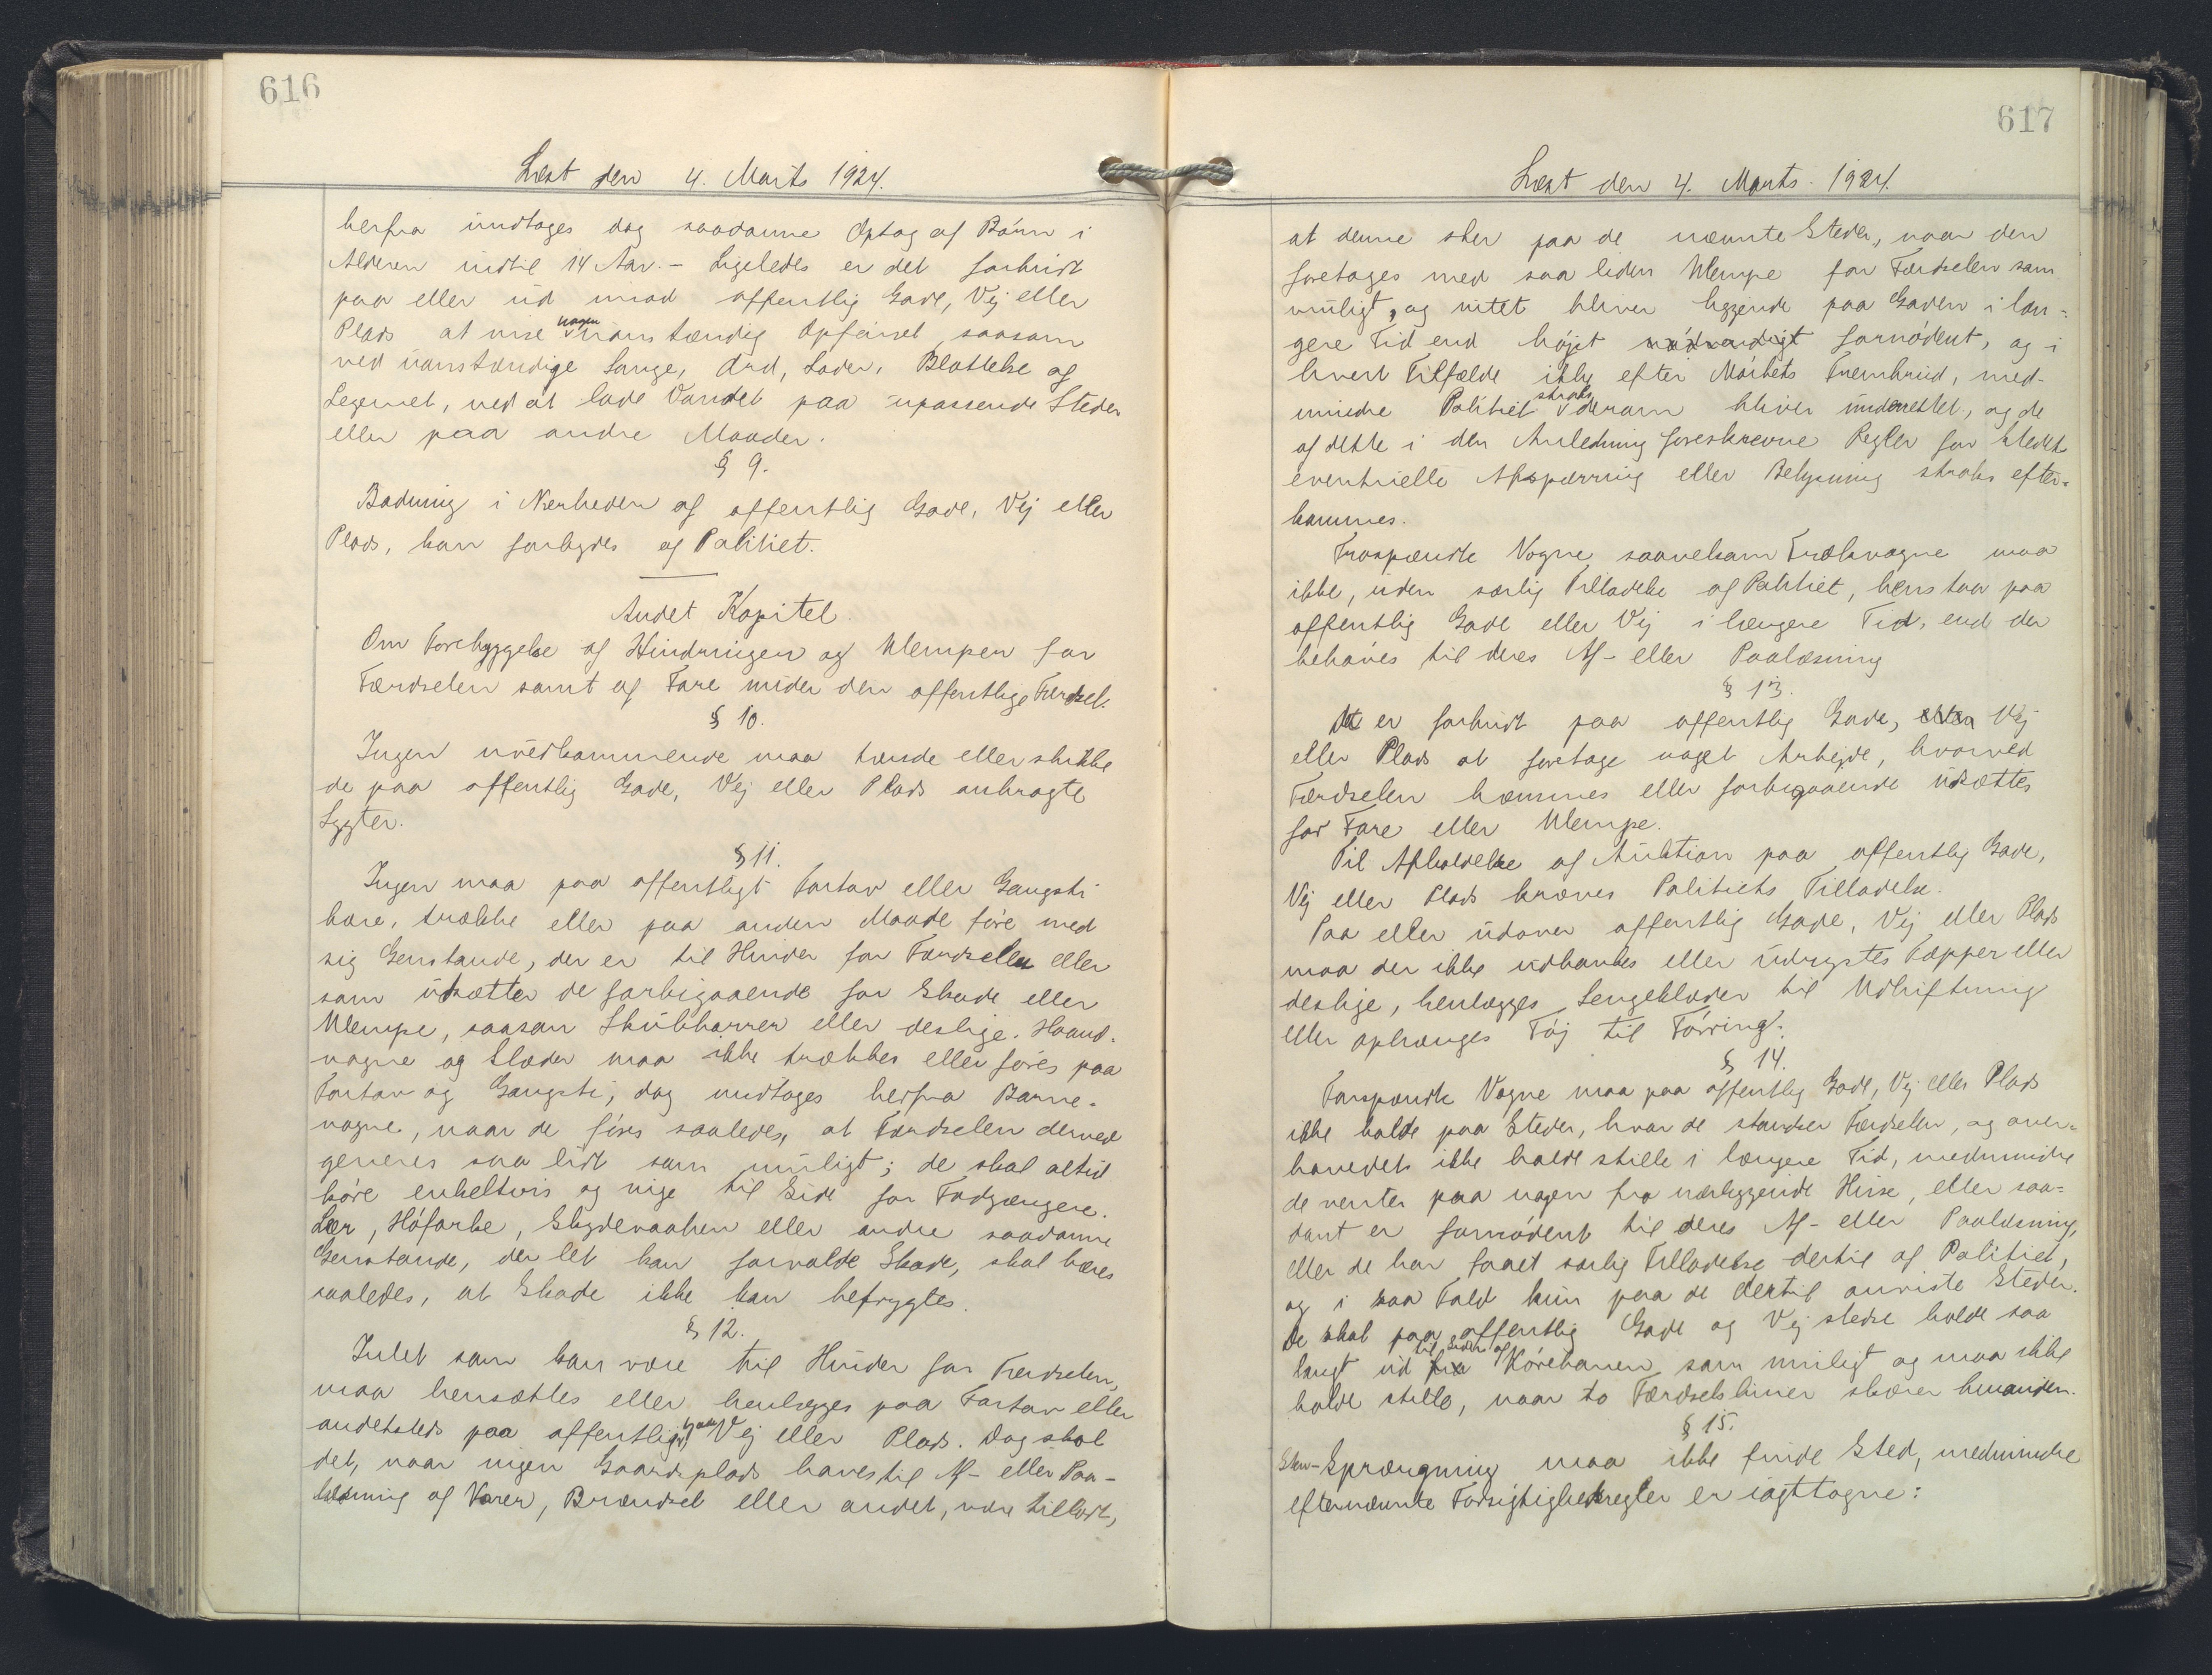 616
Læst den 4. Marts 1924.
herfra undtages dog saadanne Optog af Børn i
Alderen indtil 14 Aar. - Ligeledes er det forbudt
paa eller ud imod offentlig Gade, Vej eller
Plads at vise nogen uanstændig Opførsel saasom
ved uanstændige Sange, Ord, Lader, Blottelse af
Legemet, ved at lade Vandet paa upassende Steder
eller paa andre Maader.
§ 9.
Badning i Nærheden af offentlig Gade, Vej eller
Plads, kan forbydes af Politiet.
Andet Kapitel.
Om Forebyggelse af Hindringer og Ulemper for
Færdselen samt af Fare under den offentlige Færdsel.
§ 10.
Ingen uvedkommende maa tænde eller slukke
de paa offentlig Gade, Vej eller Plads anbragte
Lygter.
§ 11.
Ingen maa paa offentligt Fortov eller Gangsti
bære, trække eller paa anden Maade føre med
sig Genstande, der er til Hinder for Færdselen eller
som udsætter de forbigaaende for Skade eller
Ulempe, saasom Skubkarrer eller deslige. Haand-
vogne og Slæder maa ikke trækkes eller føres paa
Fortov og Gangsti; dog undtages herfra Barne-
vogne, naar de føres saaledes, at Færdselen derved
generes saa lidt som muligt; de skal altid
køre enkeltvis og vige til Side for Fodgængere.
Leer, Høforke, Skydevaaben eller andre saadanne
Genstande, der let kan forvolde Skade, skal bæres
saaledes, at Skade ikke kan befrygtes.
§ 12.
Intet som kan være til Hinder for Færdselen,
maa hensættes eller henlægges paa Fortov eller
andetsteds paa offentlig Gade Vej eller Plads. Dog skal
det, naar ingen Gaardsplads haves til Af- eller Paa-
læsning af Varer, Brændsel eller andet, være tilladt,
617
Læst den 4. Marts. 1924.
at denne sker paa de nævnte Steder, naar den
foretages med saa liden Ulempe for Færdselen som
muligt, og intet bliver liggende paa Gaden i læn-
gere Tid end højst nødvendigt fornødent, og i
hvert Tilfælde ikke efter Mørkets Frembrud, med-
mindre Politiet straks derom bliver underrettet, og de
af dette i den Anledning foreskrevne Regler for Stedets
eventuelle Afspærring eller Belysning straks efter-
kommes.
Fraspændte Vogne saavelsom Trækvogne maa
ikke, uden særlig Tilladelse af Politiet, henstaa paa
offentlig Gade eller Vej i længere Tid, end der
behøves til deres Af- eller Paalæsning
§ 13.
Det er forbudt paa offentlig Gade, eller Vej
eller Plads at foretage noget Arbejde, hvorved
Færdselen hæmmes eller forbigaaende udsættes
for Fare eller Ulempe.
Til Afholdelse af Auktion paa offentlig Gade,
Vej eller Plads kræves Politiets Tilladelse.
Paa eller udover offentlig Gade, Vej eller Plads
maa der ikke udbankes eller udrystes Tæpper eller
deslige, henlægges Sengeklæder til Udluftning
eller ophænges Tøj til Tørring.
§ 14.
Forspændte Vogne maa paa offentlig Gade, Vej eller Plads
ikke holde paa Steder, hvor de standser Færdselen, og over-
hovedet ikke holde stille i længere Tid, medmindre
de venter paa nogen fra nærliggende Huse, eller saa-
dant er fornødent til deres Af- eller Paalæsning,
eller de har faaet særlig Tilladelse dertil af Politiet,
og i saa Fald kun paa de dertil anviste Steder.
De skal paa offentlig Gade og Vej stedse holde saa
langt ud fra til Siden af Kørebanen som muligt og maa ikke
holde stille, naar to Færdselslinier skærer hinanden.
§ 15.
Sten-Sprængning maa ikke finde Sted, medmindre
efternævnte Forsigtighedsregler er iagttagne: